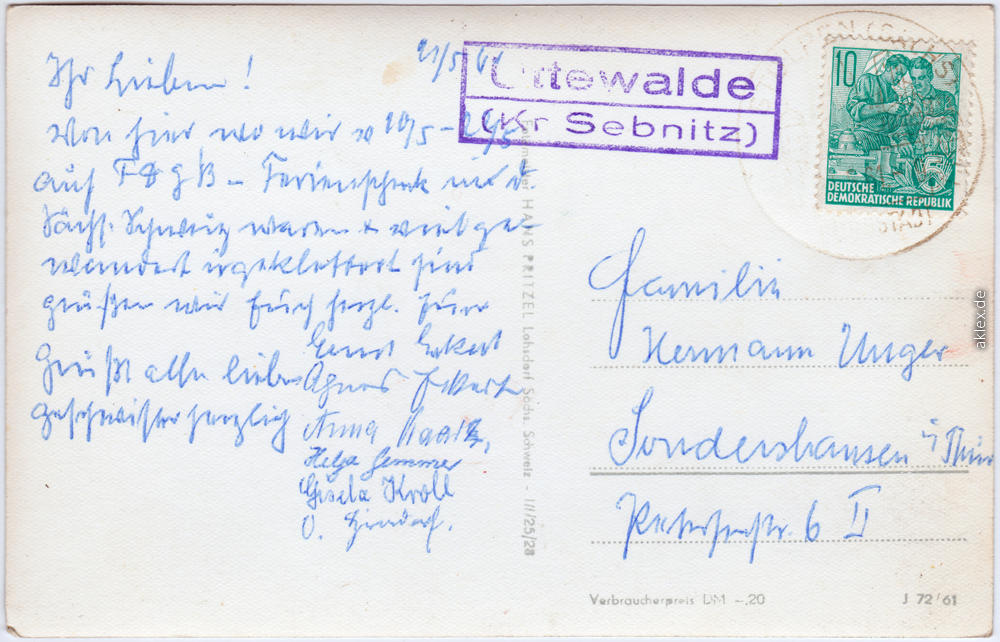 21/5 61
Ihr Lieben!
Von hier wo wir v 10/5 –
auf FDGB – Ferienscheck in d.
Sächs. Schweiz waren + viel ge-
wandert u. geklettert sind
grüßen wir Euch herzl. Euer
Ernst Eckert
Grüßt alle lieben
Agnes Eckert
Geschwister herzlich
Anna
Helga Hemmer
Gisela Kroll
O.
Uttewalde
(Kr Sebnitz)
10
DEUTSCHE
DEMOKRATISCHE REPUBLIK
5
STADT
HANS PRITZEL Lohsdorf Sächs. Schweiz - III/25/28
Familie
Hermann Unger
Sondershausen i/Thür
Petersenstr. 6 II
Verbraucherpreis DM –.20
J 72/61
aklex.de